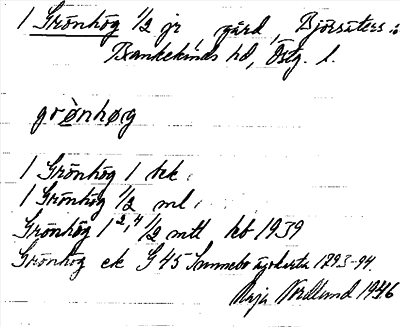 1 Grönhög 1/2 jr, gård, Björsäters s:n
Bankekinds hd, Östg. l.
grønhøg
1 Grönhög 1 tek
1 Grönhög 1/2 ml
Grönhög 1 2,4/2 mtl kb 1939
Grönhög ek G45 Sunnebo 1893-94
Maja Nordlund 1946